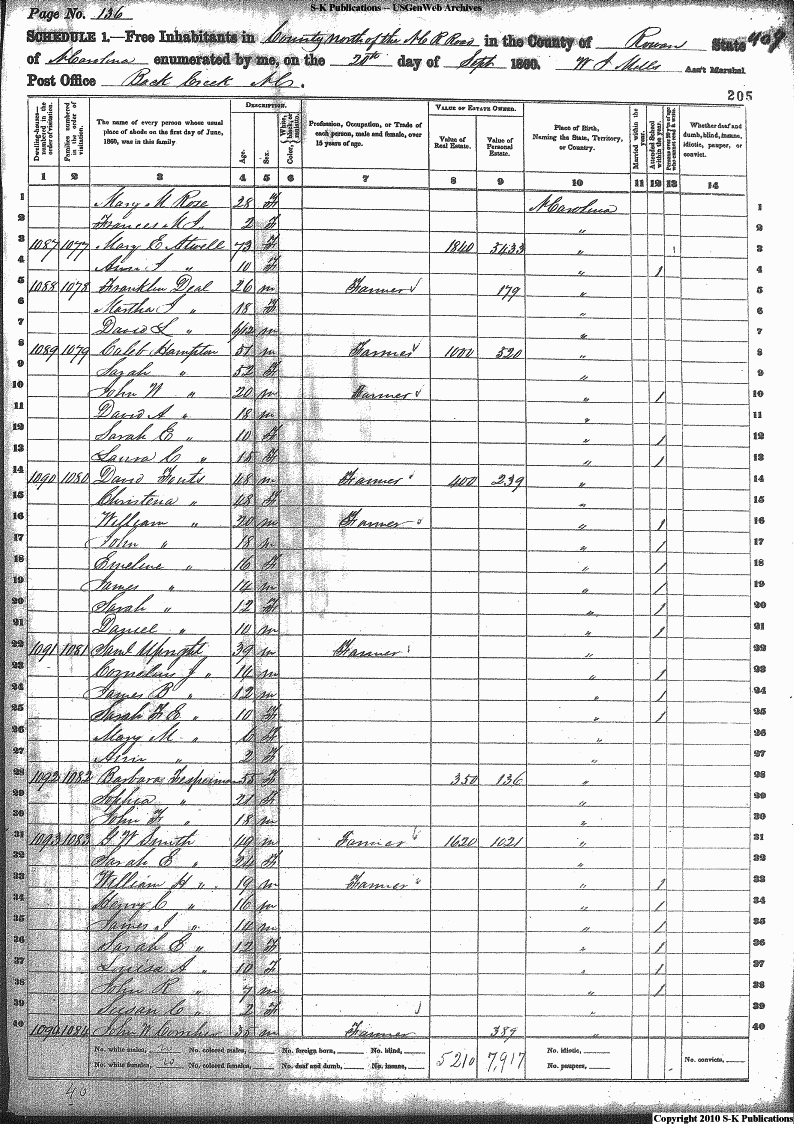 S-K Publications -- USGenWeb Archives
Page No. 136
SCHEDULE 1.—Free Inhabitants in County North of the N C R Road in the County of Rowan State 409
of N Carolina enumerated by me, on the 20th day of Sept 1860. W J Mills Ass't Marshal
Post Office Back Creek N C.
205
Dwelling-houses—numbered in the order of visitation.
Families numbered in the order of visitation.
The name of every person whose usual place of abode on the first day of June, 1860, was in this family
DESCRIPTION.
Age.
Sex.
Color, White, black, or mulatto.
Profession, Occupation, or Trade of each person, male and female, over 15 years of age.
VALUE OF ESTATE OWNED.
Value of Real Estate.
Value of Personal Estate.
Place of Birth, Naming the State, Territory, or Country.
Married within the year.
Attended School within the year.
Persons over 20 y'rs of age who cannot read & write.
Whether deaf and dumb, blind, insane, idiotic, pauper, or convict.
1 2 3 4 5 6 7 8 9 10 11 12 13 14
1 Mary M Rose 28 F N Carolina 1
2 Frances M J 2 F " 2
3 1087 1077 Mary E Atwell 73 F 1840 5433 " 1 3
4 Ann J " 10 F " 1 4
5 1088 1078 Franklin Deal 26 m Farmer 179 " 5
6 Martha J " 18 F " 6
7 David L " 6/12 m " 7
8 1089 1079 Caleb Hampton 51 m Farmer 1000 520 " 8
9 Sarah " 52 F " 9
10 John W " 20 m Farmer " 1 10
11 David A " 18 m " 11
12 Sarah E " 10 F " 1 12
13 Laura C " 15 F " 1 13
14 1090 1080 David Fouts 48 m Farmer 400 239 " 14
15 Christena " 48 F " 15
16 William " 20 m Farmer " 1 16
17 John " 18 m " 1 17
18 Emeline " 16 F " 1 18
19 James " 14 m " 1 19
20 Sarah " 12 F " 1 20
21 Daniel " 10 m " 1 21
22 1091 1081 Saml Upright 39 m Farmer " 22
23 Cornelius J " 14 m " 1 23
24 James B " 12 m " 1 24
25 Sarah F E " 10 F " 1 25
26 Mary M " 6 F " 26
27 Ann " 2 F " 27
28 1092 1082 Barbara Fesperman 55 F 350 136 " 28
29 Sophia " 21 F " 29
30 John F " 18 m " 30
31 1093 1083 G W Smith 49 m Farmer 1620 1021 " 31
32 Sarah E " F " 32
33 William H " 19 m Farmer " 1 33
34 Henry C " 16 m " 1 34
35 James J " 14 m " 1 35
36 Sarah E " 12 F " 1 36
37 Louisa A " 10 F " 1 37
38 John R " 7 m " 1 38
39 Susan C " 2 F " 39
40 1094 1084 John W Corriher 35 m Farmer 389 " 40
No. white males, No. colored males, No. foreign born, No. blind, 5210 7,917 No. idiotic, No. convicts,
No. white females, No. colored females, No. deaf and dumb, No. insane, No. paupers,
40
Copyright 2010 S-K Publications